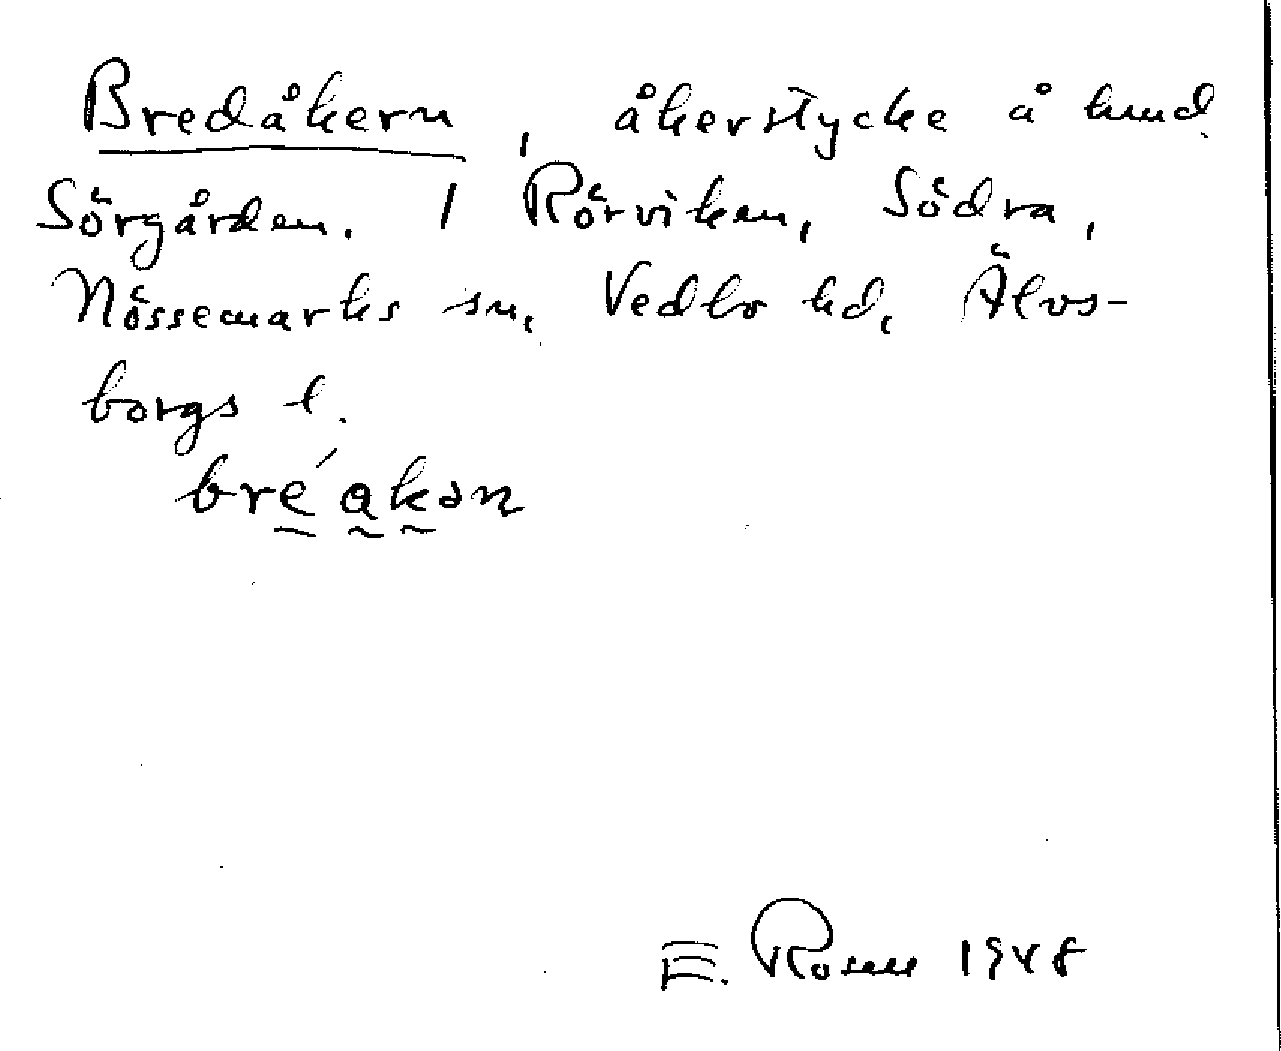 Bredåkern, åkerstycke å hmd
Sörgården. 1 Rörviken, Södra,
Nössemarks sn, Vedbo hd, Älvs-
borgs l.
bre´ạkən
E. Rosell 1948